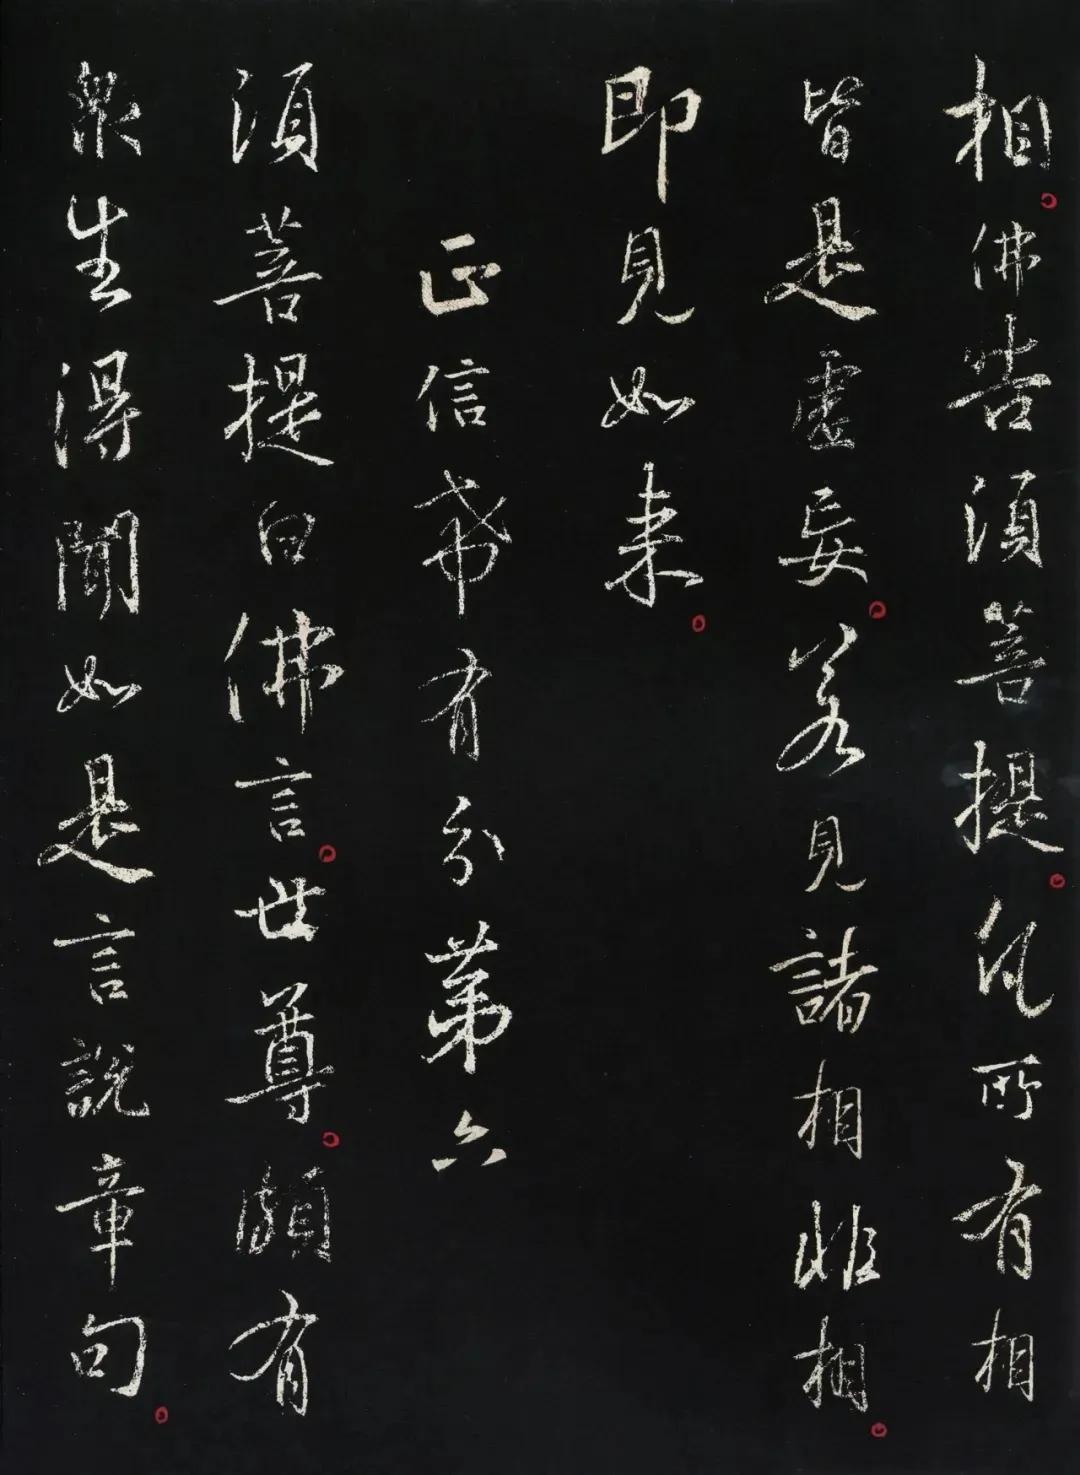 相佛告須菩提凡所有相
皆是虛妄若見諸相非相
即見如来
正信希有分第六
須菩提白佛言世尊頗有
眾生得聞如是言說章句